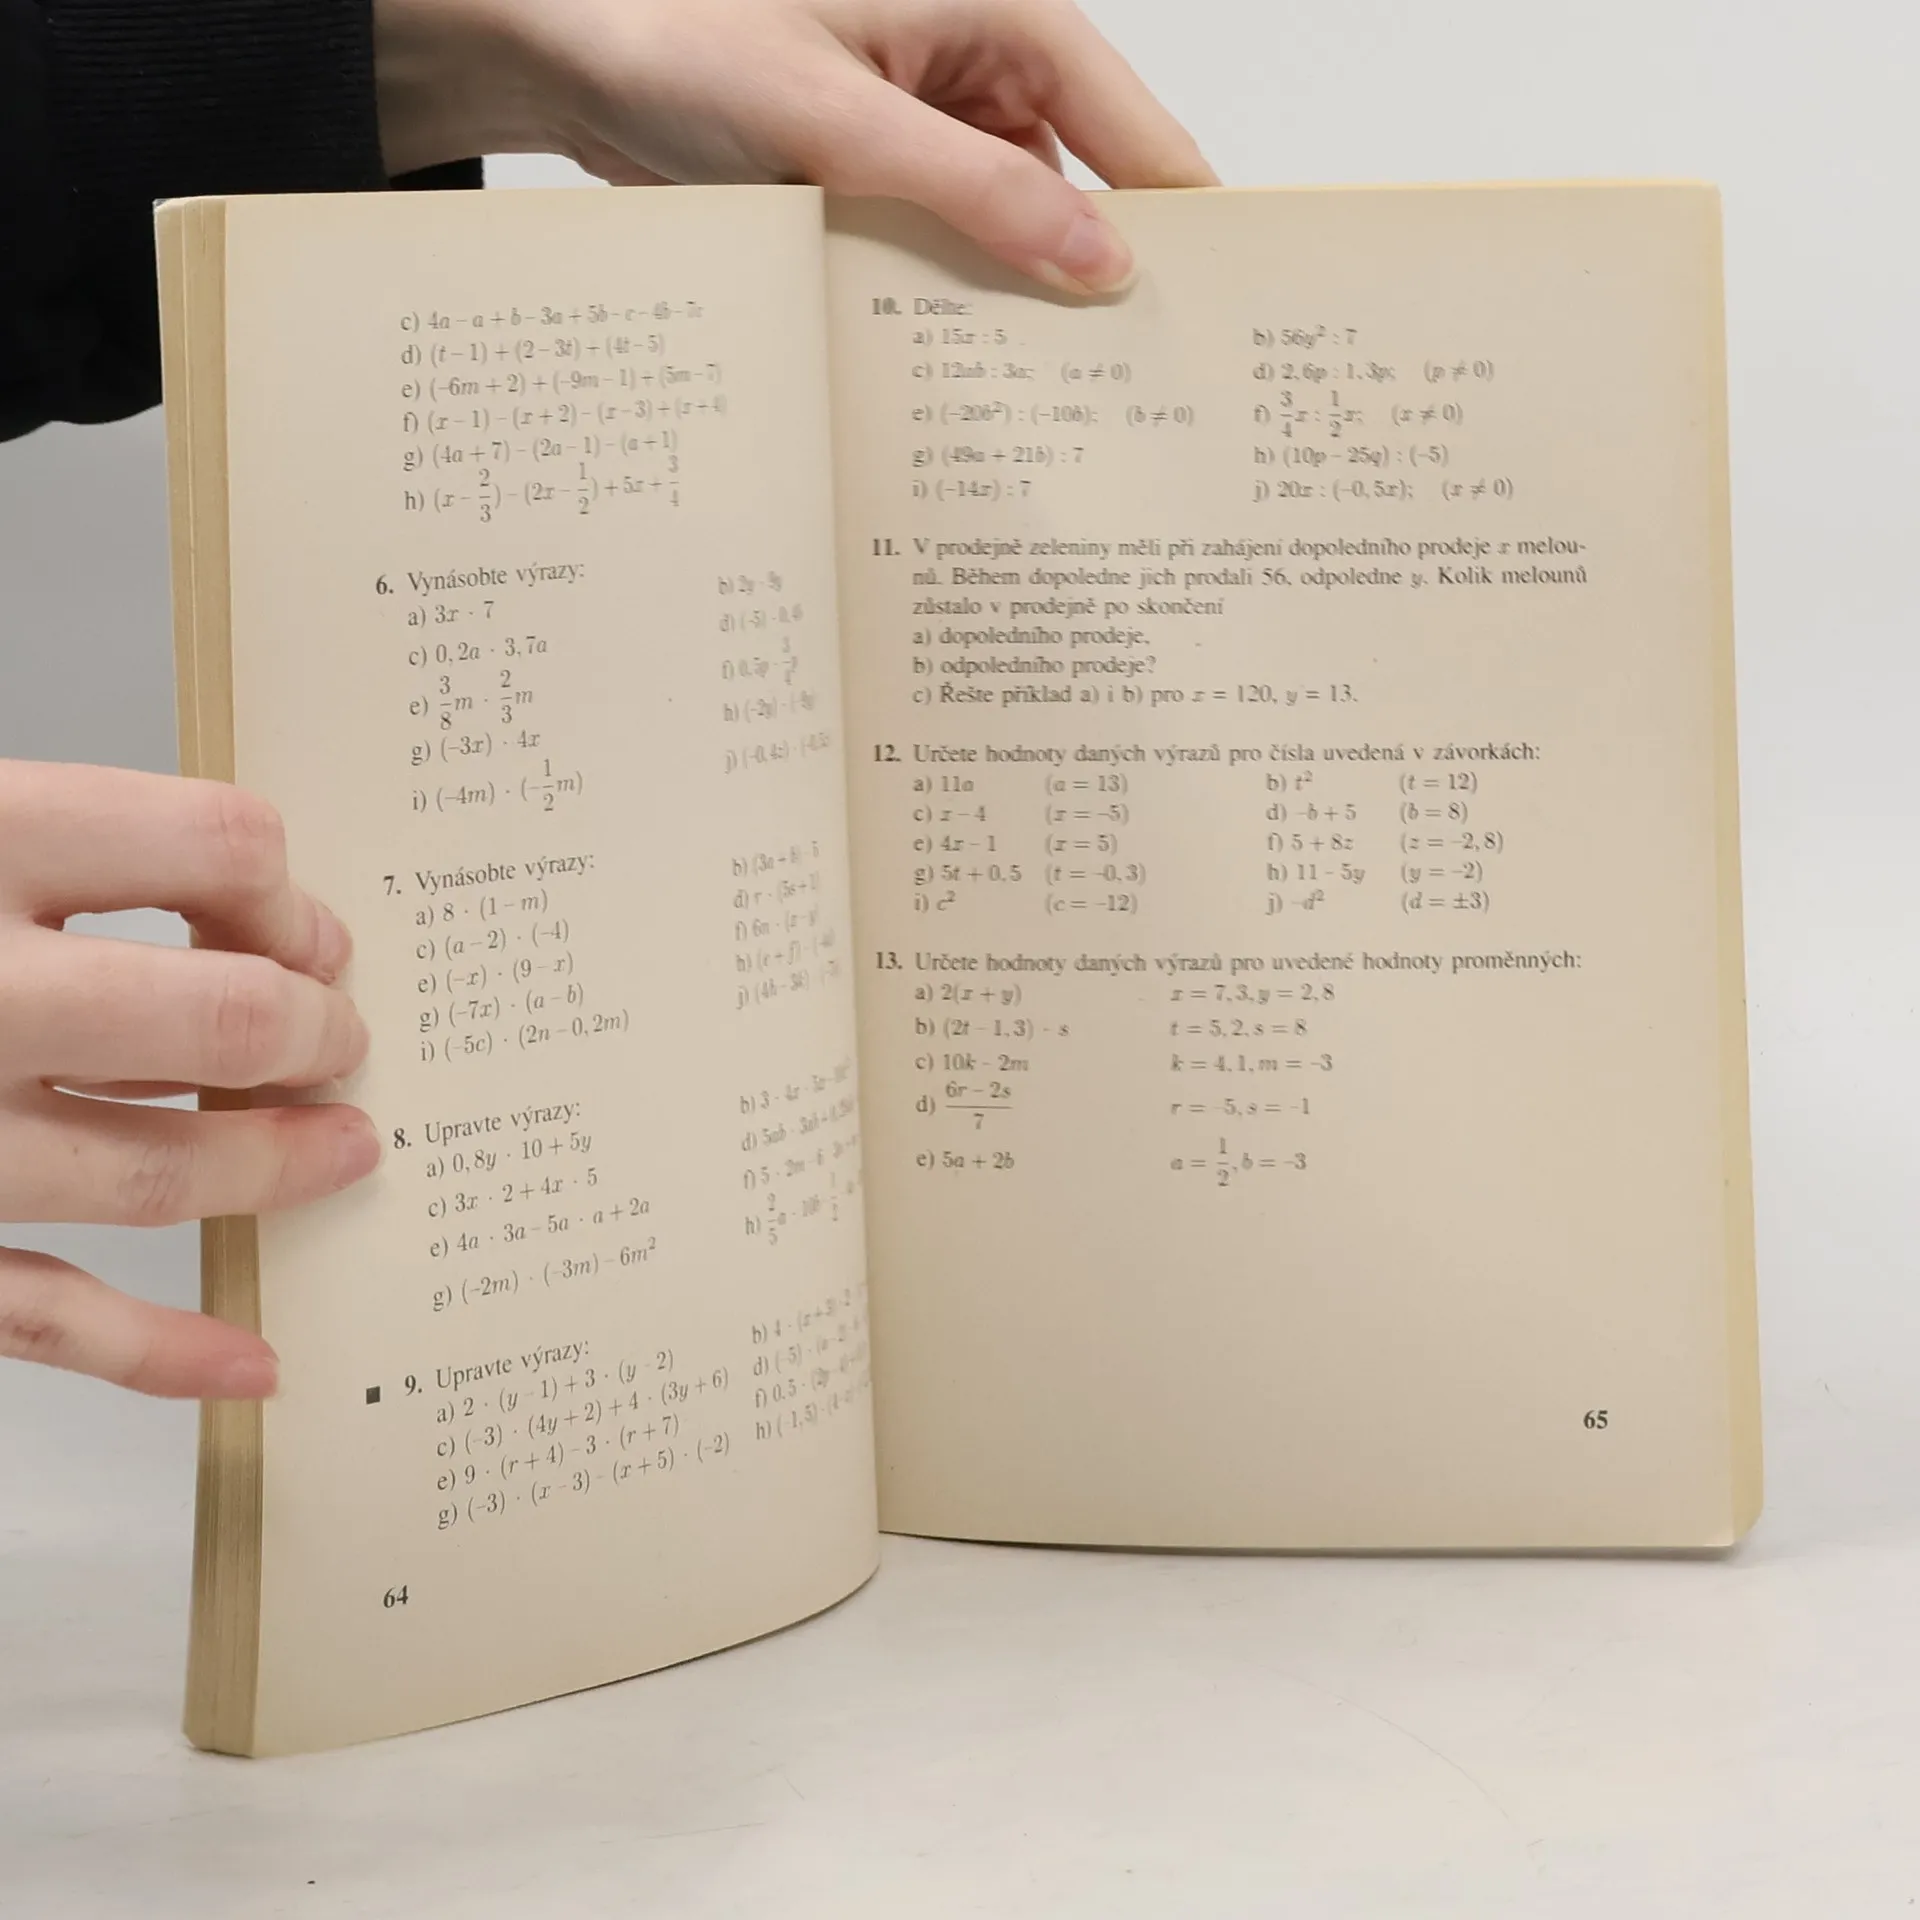 c) 4a – a + b – 3a + 5b – c – 4b – 7c
d) (t – 1) + (2 – 3t) + (4t – 5)
e) (–6m + 2) + (–9m – 1) + (5m – 7)
f) (x – 1) – (x + 2) – (x – 3) + (x + 4)
g) (4a + 7) – (2a – 1) – (a + 1)
h) (x – 2/3) – (2x – 1/2) + 5x + 3/4
6. Vynásobte výrazy:
a) 3x · 7 b) 2y · 9y
c) 0,2a · 3,7a d) (–5) ·
e) 3/8 m · 2/3 m f) 0,5p ·
g) (–3x) · 4x h) (–2y) ·
i) (–4m) · (–1/2 m) j) (–0,4z) ·
7. Vynásobte výrazy:
a) 8 · (1 – m) b) (3a + b) · 5
c) (a – 2) · (–4) d) r · (5s + 1)
e) (–x) · (9 – x) f) 6n · (x – y)
g) (–7x) · (a – b) h) (e + f) ·
i) (–5c) · (2n – 0,2m) j) (4h – 3k) ·
8. Upravte výrazy:
a) 0,8y · 10 + 5y b) 3 · 4x ·
c) 3x · 2 + 4x · 5 d) 5ab ·
e) 4a · 3a – 5a · a + 2a f) 5 · 2m ·
g) (–2m) · (–3m) – 6m² h) 2/5 a ·
9. Upravte výrazy:
a) 2 · (y – 1) + 3 · (y – 2) b) 4 · (x + 3)
c) (–3) · (4y + 2) + 4 · (3y + 6) d) (–5) ·
e) 9 · (r + 4) – 3 · (r + 7) f) 0,5 ·
g) (–3) · (x – 3) – (x + 5) · (–2) h) (–1,5) ·
64
10. Dělte:
a) 15x : 5 b) 56y² : 7
c) 12ab : 3a; (a ≠ 0) d) 2,6p : 1,3p; (p ≠ 0)
e) (–20b²) : (–10b); (b ≠ 0) f) 3/4 x : 1/2 x; (x ≠ 0)
g) (49a + 21b) : 7 h) (10p – 25q) : (–5)
i) (–14x) : 7 j) 20x : (–0,5x); (x ≠ 0)
11. V prodejně zeleniny měli při zahájení dopoledního prodeje x melou-
nů. Během dopoledne jich prodali 56, odpoledne y. Kolik melounů
zůstalo v prodejně po skončení
a) dopoledního prodeje,
b) odpoledního prodeje?
c) Řešte příklad a) i b) pro x = 120, y = 13.
12. Určete hodnoty daných výrazů pro čísla uvedená v závorkách:
a) 11a (a = 13) b) t² (t = 12)
c) x – 4 (x = –5) d) –b + 5 (b = 8)
e) 4x – 1 (x = 5) f) 5 + 8z (z = –2,8)
g) 5t + 0,5 (t = –0,3) h) 11 – 5y (y = –2)
i) c² (c = –12) j) –d² (d = ±3)
13. Určete hodnoty daných výrazů pro uvedené hodnoty proměnných:
a) 2(x + y) x = 7,3, y = 2,8
b) (2t – 1,3) · s t = 5,2, s = 8
c) 10k – 2m k = 4,1, m = –3
d) (6r – 2s)/7 r = –5, s = –1
e) 5a + 2b a = 1/2, b = –3
65